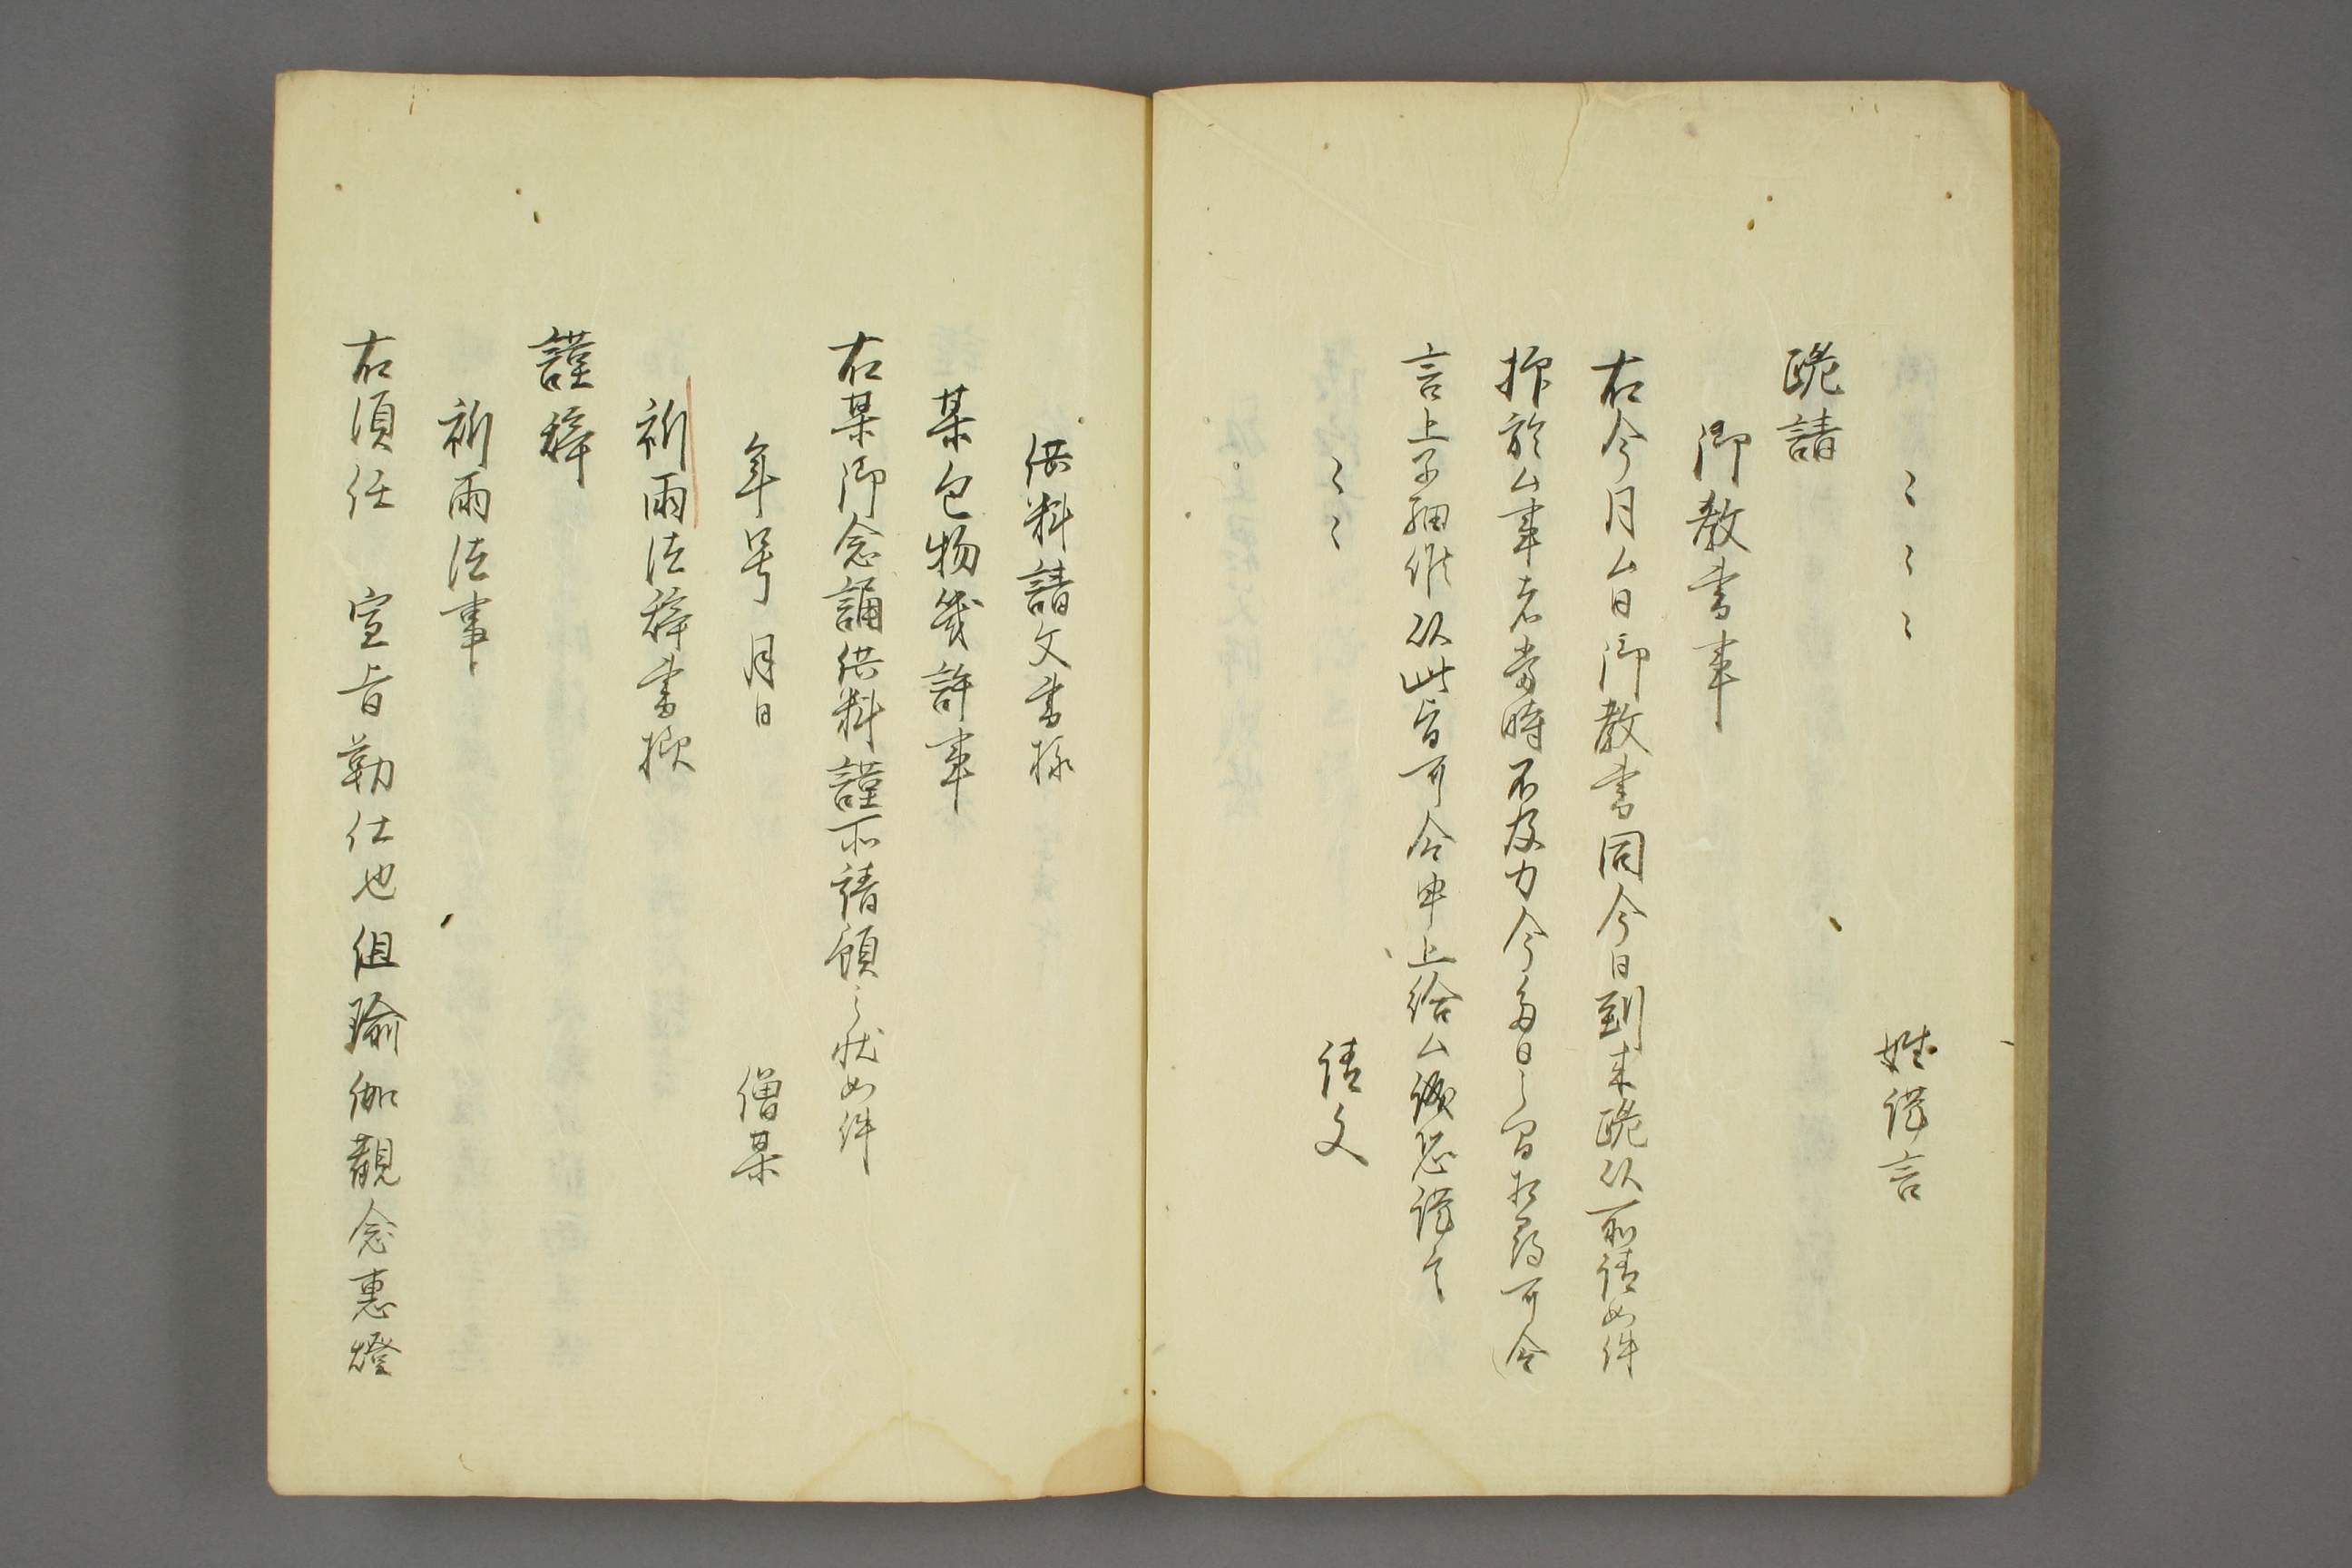 〻〻〻 姓謹言
跪請
御教書事
右今月ム日御教書同今日到来跪以所請如件
抑於ム事者当時不及力今多日之間相尋可令
言上子細候以此旨可令申上給ム誠恐謹言
〻〻 請文
供料請文書様
某包物幾許事
右某御念誦供料謹所請領之状如件
年号月日 僧某
祈雨法辞書様
謹辞
祈雨法事
右須任 宣旨勤仕也但瑜伽観念恵燈